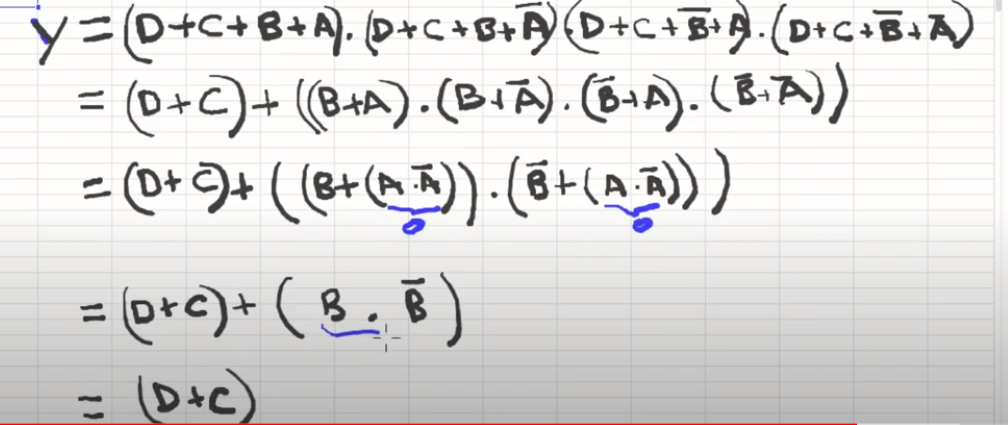 y = (D+C+B+A).(D+C+B+A̅)(D+C+B̅+A).(D+C+B̅+A̅)
= (D+C)+((B+A).(B+A̅).(B̅+A).(B̅+A̅))
= (D+C)+((B+(A.A̅)).(B̅+(A.A̅)))
0 0
= (D+C)+(B.B̅)
= (D+C)